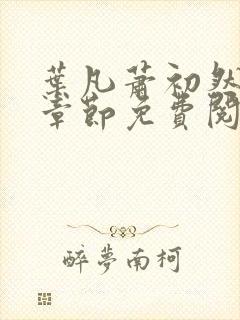 葉凡蕭初然
章節免費閱
醉夢南柯